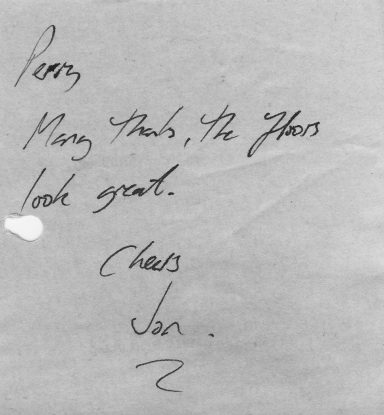 Perry
Many thanks, the floors
look great.
Cheers
Jan.